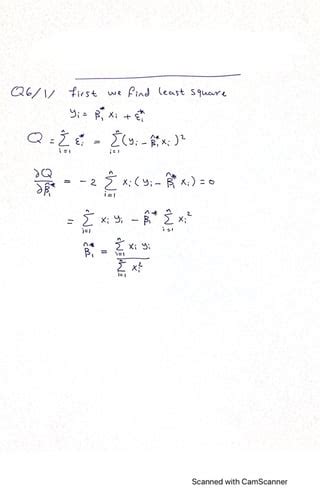 Q6/1/ first we find least square
yᵢ = β₁* xᵢ + εᵢ*
Q = Σⁿᵢ₌₁ εᵢ* = Σⁿᵢ₌₁ (yᵢ - β̂₁* xᵢ)²
∂Q/∂β̂₁* = -2 Σⁿᵢ₌₁ xᵢ (yᵢ - β̂₁* xᵢ) = 0
= Σⁿᵢ₌₁ xᵢ yᵢ - β̂₁* Σⁿᵢ₌₁ xᵢ²
β̂₁* = Σⁿᵢ₌₁ xᵢ yᵢ / Σⁿᵢ₌₁ xᵢ²
Scanned with CamScanner